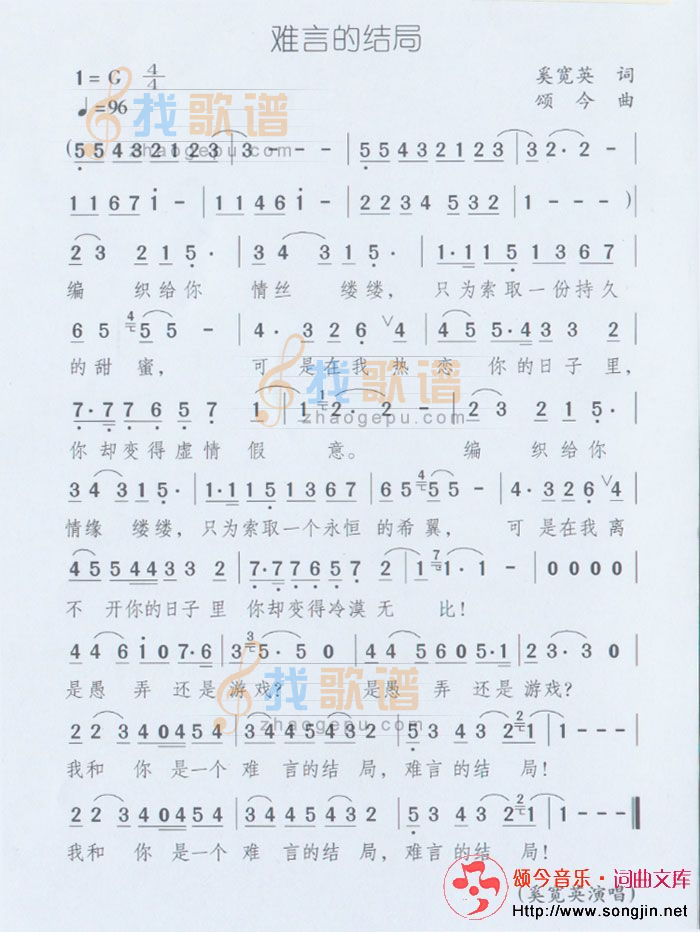 难言的结局
1=G 4/4
奚宽英 词
♩=96
颂今 曲
找歌谱
zhaogepu.com
(55432123 | 32·2- | 55432123 | 32·2- |
11671- | 11461- | 2234 532 | 1--- )
23 215· | 34 315· | 1·1151367 |
编 织给你 情丝 缕缕， 只为索取一份持久
65 4/55- | 4·326∨4 | 455·433 2 |
的甜蜜， 可是在我热恋 你的日子里，
找歌谱
zhaogepu.com
7·77657 1 | 1/2·2- | 23 215· |
你却变得虚情假 意。 编 织给你
34 315· | 1·1151367 | 65 4/55- | 4·326∨4 |
情缘 缕缕，只为索取一个永恒 的希翼， 可是在我离
4554433 2 | 7·77657 2 | 1 7/1·1- | 0000 |
不 开你的日子里 你却变得冷漠无 比！
44 6107·6 | 3 3/5·50 | 44 5605·1 |
是愚 弄 还是游戏？ 是愚 弄还是游戏？
找歌谱
zhaogepu.com
22 340454 | 34454432 | 53 432 2/1 | 1--- |
我和 你 是一个 难 言的结 局，难言的结 局！
22 340454 | 34454432 | 53 432 2/1 | 1---
我和 你 是一个 难 言的结 局，难言的结 局！
(奚宽英演唱)
颂今音乐·词曲文库
Http://www.songjin.net/